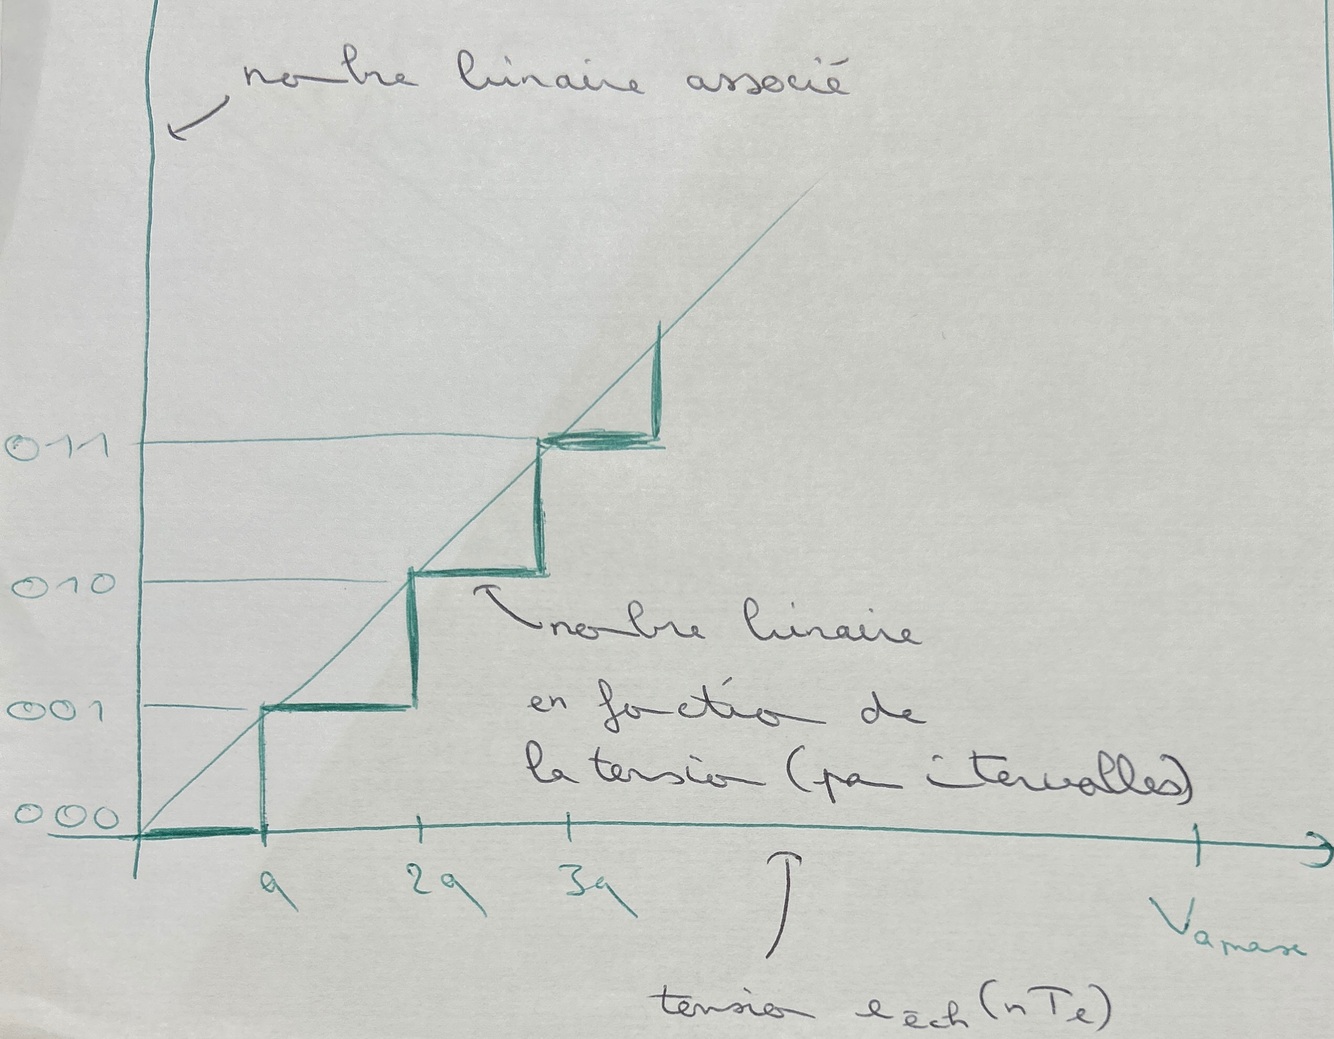 nombre binaire associé
011
010
nombre binaire
en fonction de
001
la tension (par intervalles)
000
q 2q 3q
Va max
tension e éch (nTe)